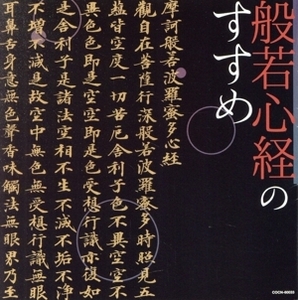 般若心経の
すすめ
摩訶般若波羅蜜多心経
觀自在菩薩行深般若波羅蜜多時照見五
蘊皆空度一切苦厄舎利子色不異空空不
異色色即是空空即是色受想行識亦復如
是舎利子是諸法空相不生不滅不垢不浄
不增不減是故空中無色無受想行識無眼
耳鼻舌身意無色聲香味觸法無眼界乃至